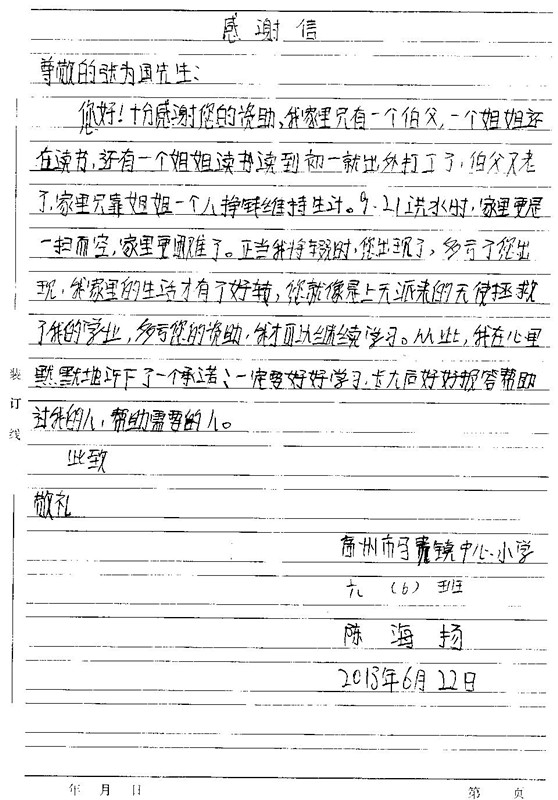 感谢信
尊敬的张为国先生:
您好!十分感谢您的资助,我家里只有一个伯父,一个姐姐还
在读书,还有一个姐姐读书读到初一就出外打工了,伯父又老
了,家里只靠姐姐一个人挣钱维持生计。9·21洪水时,家里更是
一扫而空,家里更困难了。正当我将辍时,您出现了,多亏了您出
现,我家里的生活才有了好转,您就像是上天派来的天使拯救
了我的学业,多亏您的资助,我才可以继续学习。从此,我在心里
默默地许下了一个承诺:一定要好好学习,长大后好好报答帮助
过我的人,帮助需要的人。
此致
敬礼
高州市马贵镇中心小学
六(6)班
陈海扬
2013年6月22日
装订线
年 月 日 第 页